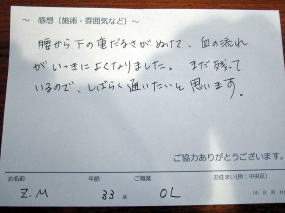 ～ 感想（施術・雰囲気など）～
腰から下の重だるさがぬけて、血の流れ
がいっきによくなりました。まだ残って
いるので、しばらく通いたいと思います。
ご協力ありがとうございます。
お名前 年齢 ご職業 お住まい(所：中央区)
Z.M 33 歳 OL